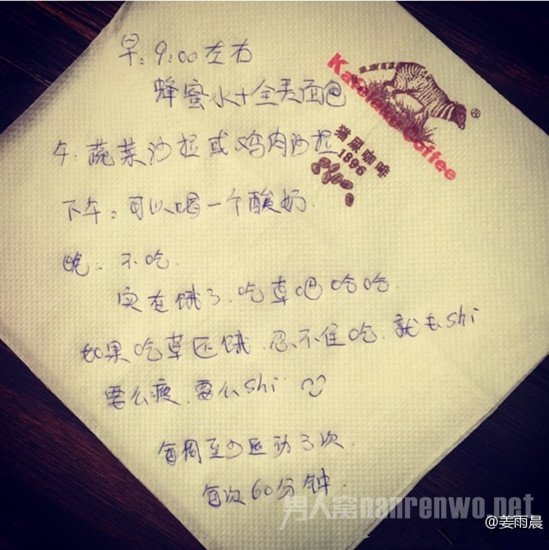 早：9:00左右
蜂蜜水+全麦面包
午：蔬菜沙拉或鸡肉沙拉
下午：可以喝一个酸奶.
晚：不吃.
实在饿了.吃草吧哈哈.
如果吃草还饿.忍不住吃.就去shi
要么瘦.要么shi
每周至少运动3次.
每次60分钟.
Coffee
®
猫屎咖啡
1896
男人窝nanrenwo.net
@姜雨晨